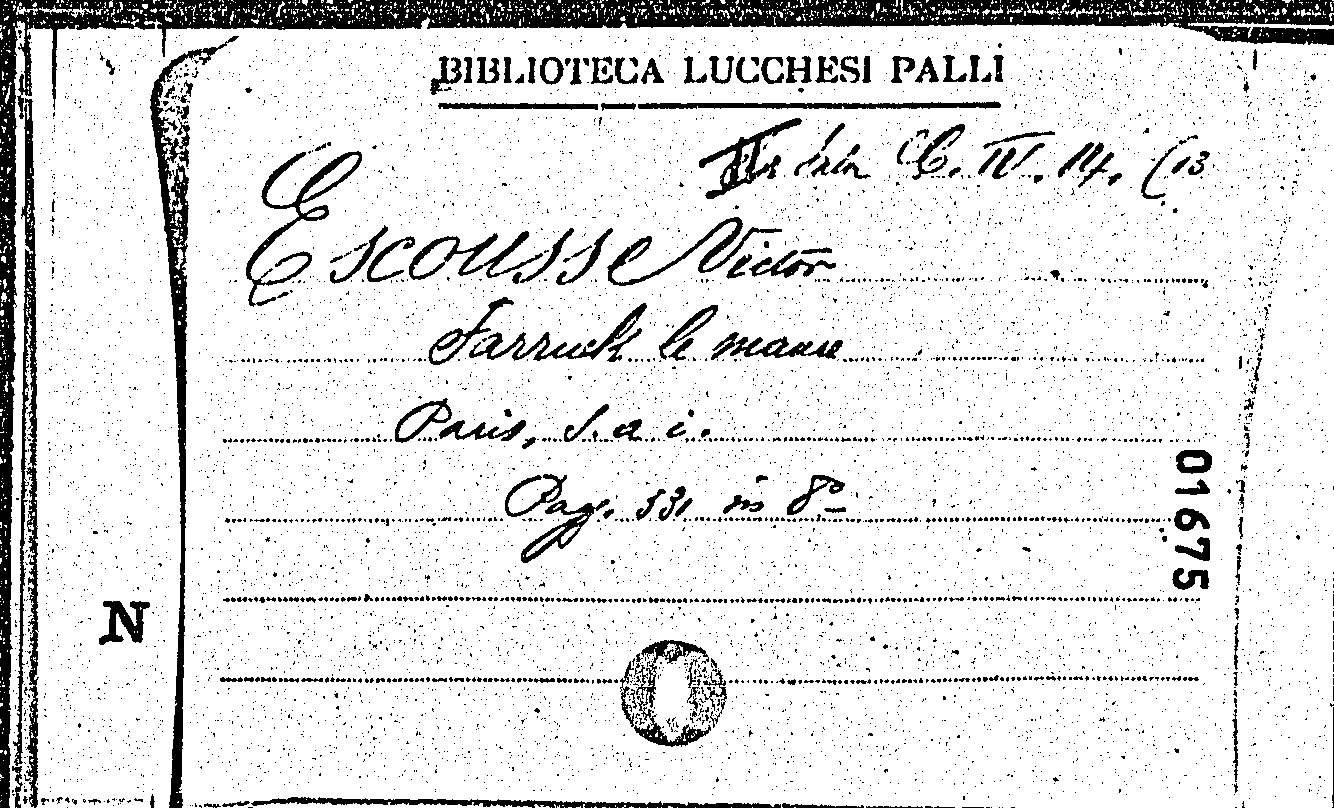 BIBLIOTECA LUCCHESI PALLI
Sala C. IV. 14. (13
Escousse Victor
Farruck le maure
Paris, s. a i.
Pag. 331 in 8º
01675
N